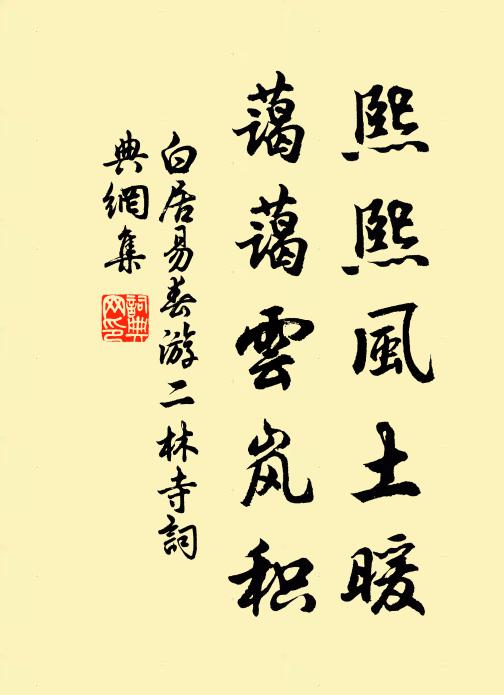 熙熙風土暖
藹藹雲岚积
白居易春游二林寺詞
典網集
詞典
网印